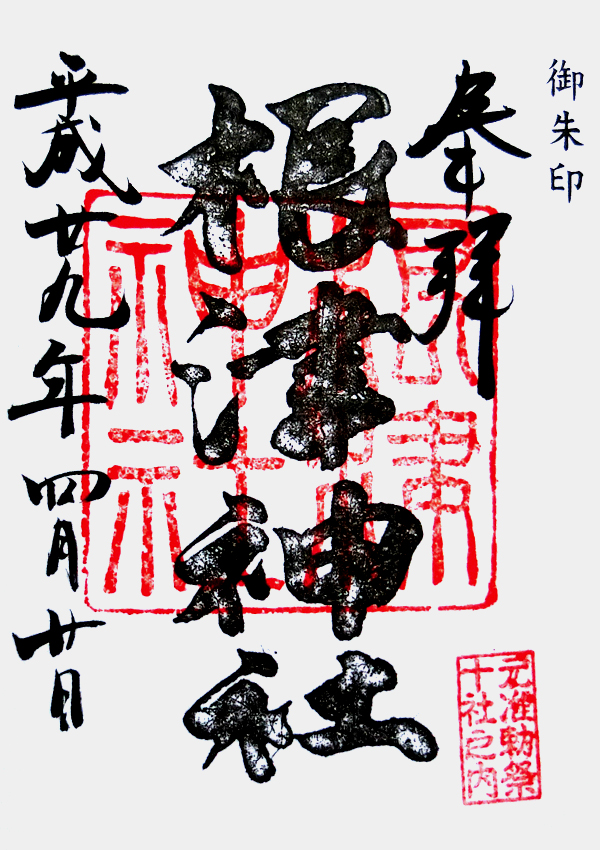 御朱印
奉拝
根津神社
平成廿九年四月廿日
元准勅祭
十社之内